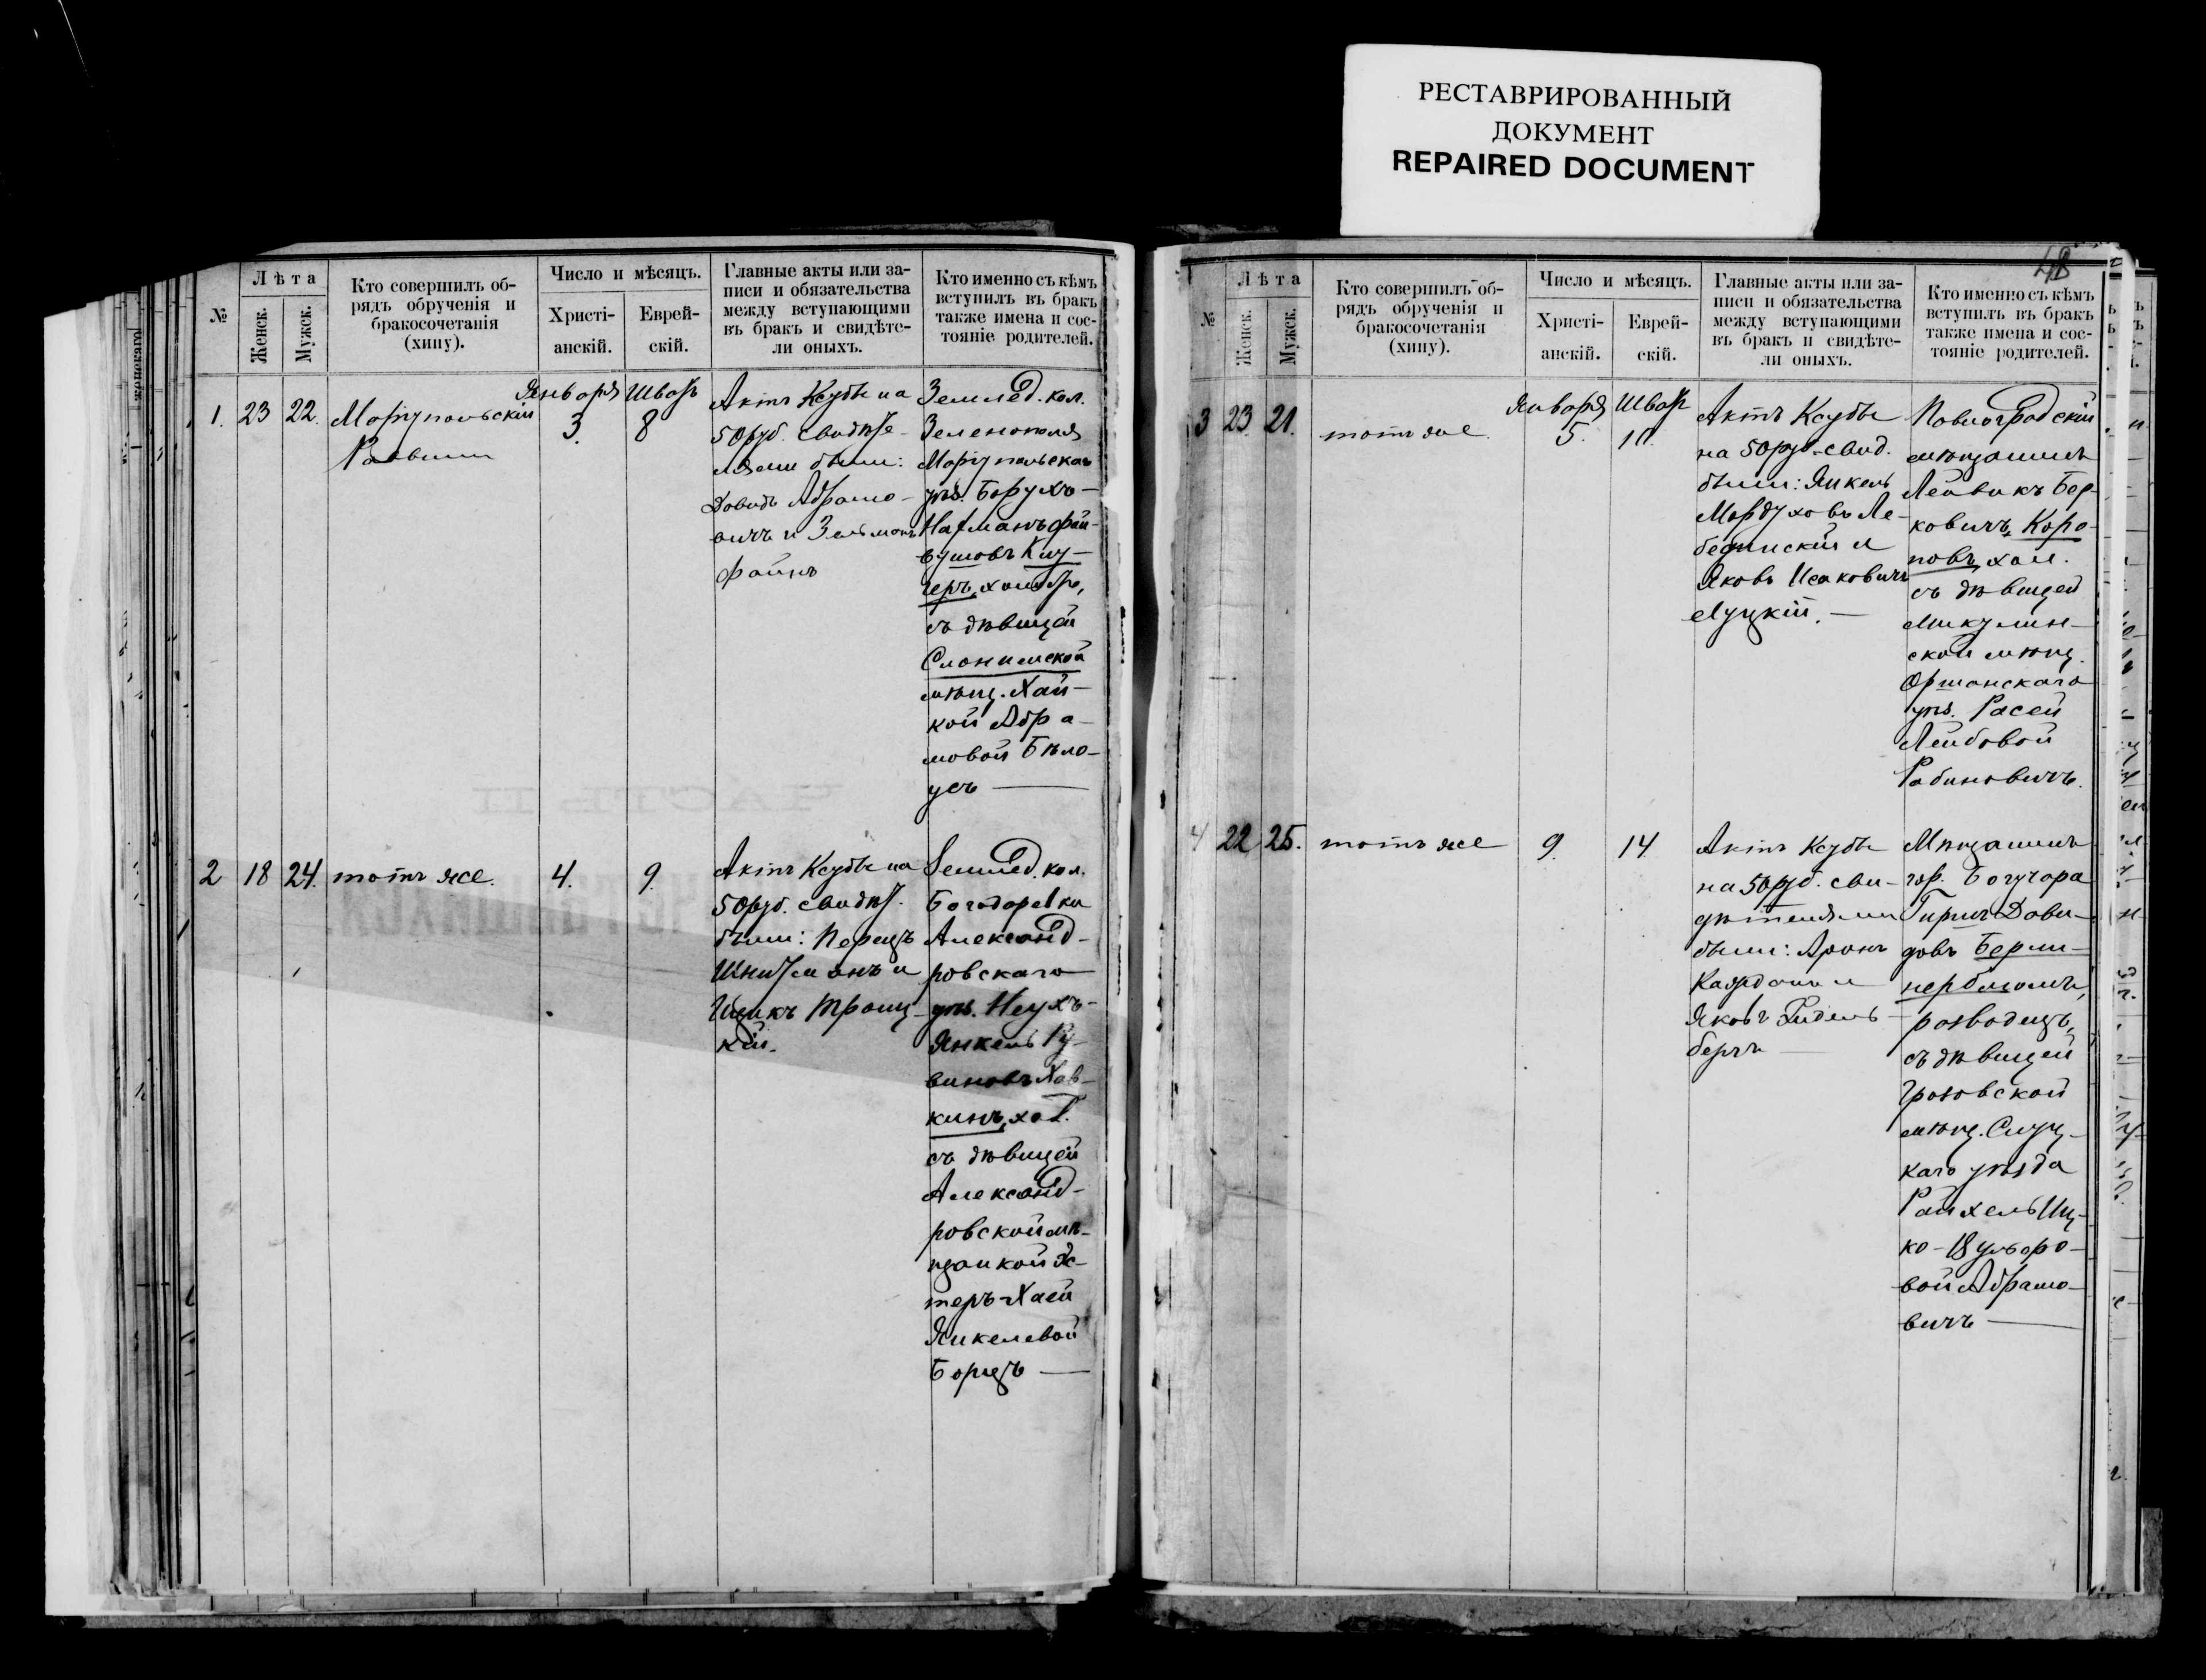 РЕСТАВРИРОВАННЫЙ
ДОКУМЕНТ
REPAIRED DOCUMENT
№
Лѣта
Женск.
Мужск.
Кто совершилъ об-
рядъ обрученія и
бракосочетанія
(хипу).
Число и мѣсяцъ.
Христі-
анскій.
Еврей-
скій.
Главные акты или за-
писи и обязательства
между вступающими
въ бракъ и свидѣте-
ли оныхъ.
Кто именно съ кѣмъ
вступилъ въ бракъ
также имена и сос-
тояніе родителей.
1.
23
22.
Маріупольскій
Раввинъ
Января
3.
Шватъ
8
Актъ Ксубы на
50 руб. свидѣте-
лями были:
Давидъ Абрамо-
вичъ и Зельманъ
Файнъ
Землед. кол.
Зеленополя
Маріупольскаго
уѣз. Борухъ-
Нахманъ Фай-
вушовъ
холостъ,
съ дѣвицей
Слонимской
мѣщ. Хай-
кой Абра-
мовой Бѣло-
усъ
2
18
24.
тотъ же.
4.
9.
Актъ Ксубы на
50 руб. свидѣт.
были: Перецъ
Шнитманъ и
Ицикъ Троиц-
кій.
Землед. кол.
Богодаровки
Александ-
ровскаго
уѣз. Неухъ-
Янкель Ру-
виновъ Хав-
кинъ, хол.
съ дѣвицей
Александ-
ровской мѣ-
щанкой Эс-
теръ-Хаей
Янкелевой
Борецъ
48
№
Лѣта
Женск.
Мужск.
Кто совершилъ об-
рядъ обрученія и
бракосочетанія
(хипу).
Число и мѣсяцъ.
Христі-
анскій.
Еврей-
скій.
Главные акты или за-
писи и обязательства
между вступающими
въ бракъ и свидѣте-
ли оныхъ.
Кто именно съ кѣмъ
вступилъ въ бракъ
также имена и сос-
тояніе родителей.
3
23
21.
тотъ же.
Января
5.
Шват
10.
Актъ Ксубы
на 50 руб. свид.
были: Янкель
Мордуховъ Ле-
бединскій и
Яковъ Исаковичъ
Луцкій.
Павлоградскій
мѣщанинъ
Лейвикъ Бер-
ковичъ Коро-
повъ, хол.
съ дѣвицей
Микулин-
ской мѣщ.
Оршанскаго
уѣз. Расей
Лейбовой
Рабиновичъ.
4
22
25.
тотъ же
9.
14
Актъ Ксубы
на 50 руб. сви-
дѣтелями
были: Аронъ
и
Яковъ Гидель-
бергъ
Мѣщанинъ
гор. Богучара
Гиршъ Дави-
довъ Берли-
нербломъ,
разводецъ,
съ дѣвицей
Грозовской
мѣщ. Слуц-
каго уѣзда
Райхель Иц-
ко-Вульфо-
вой Абрамо-
вичъ